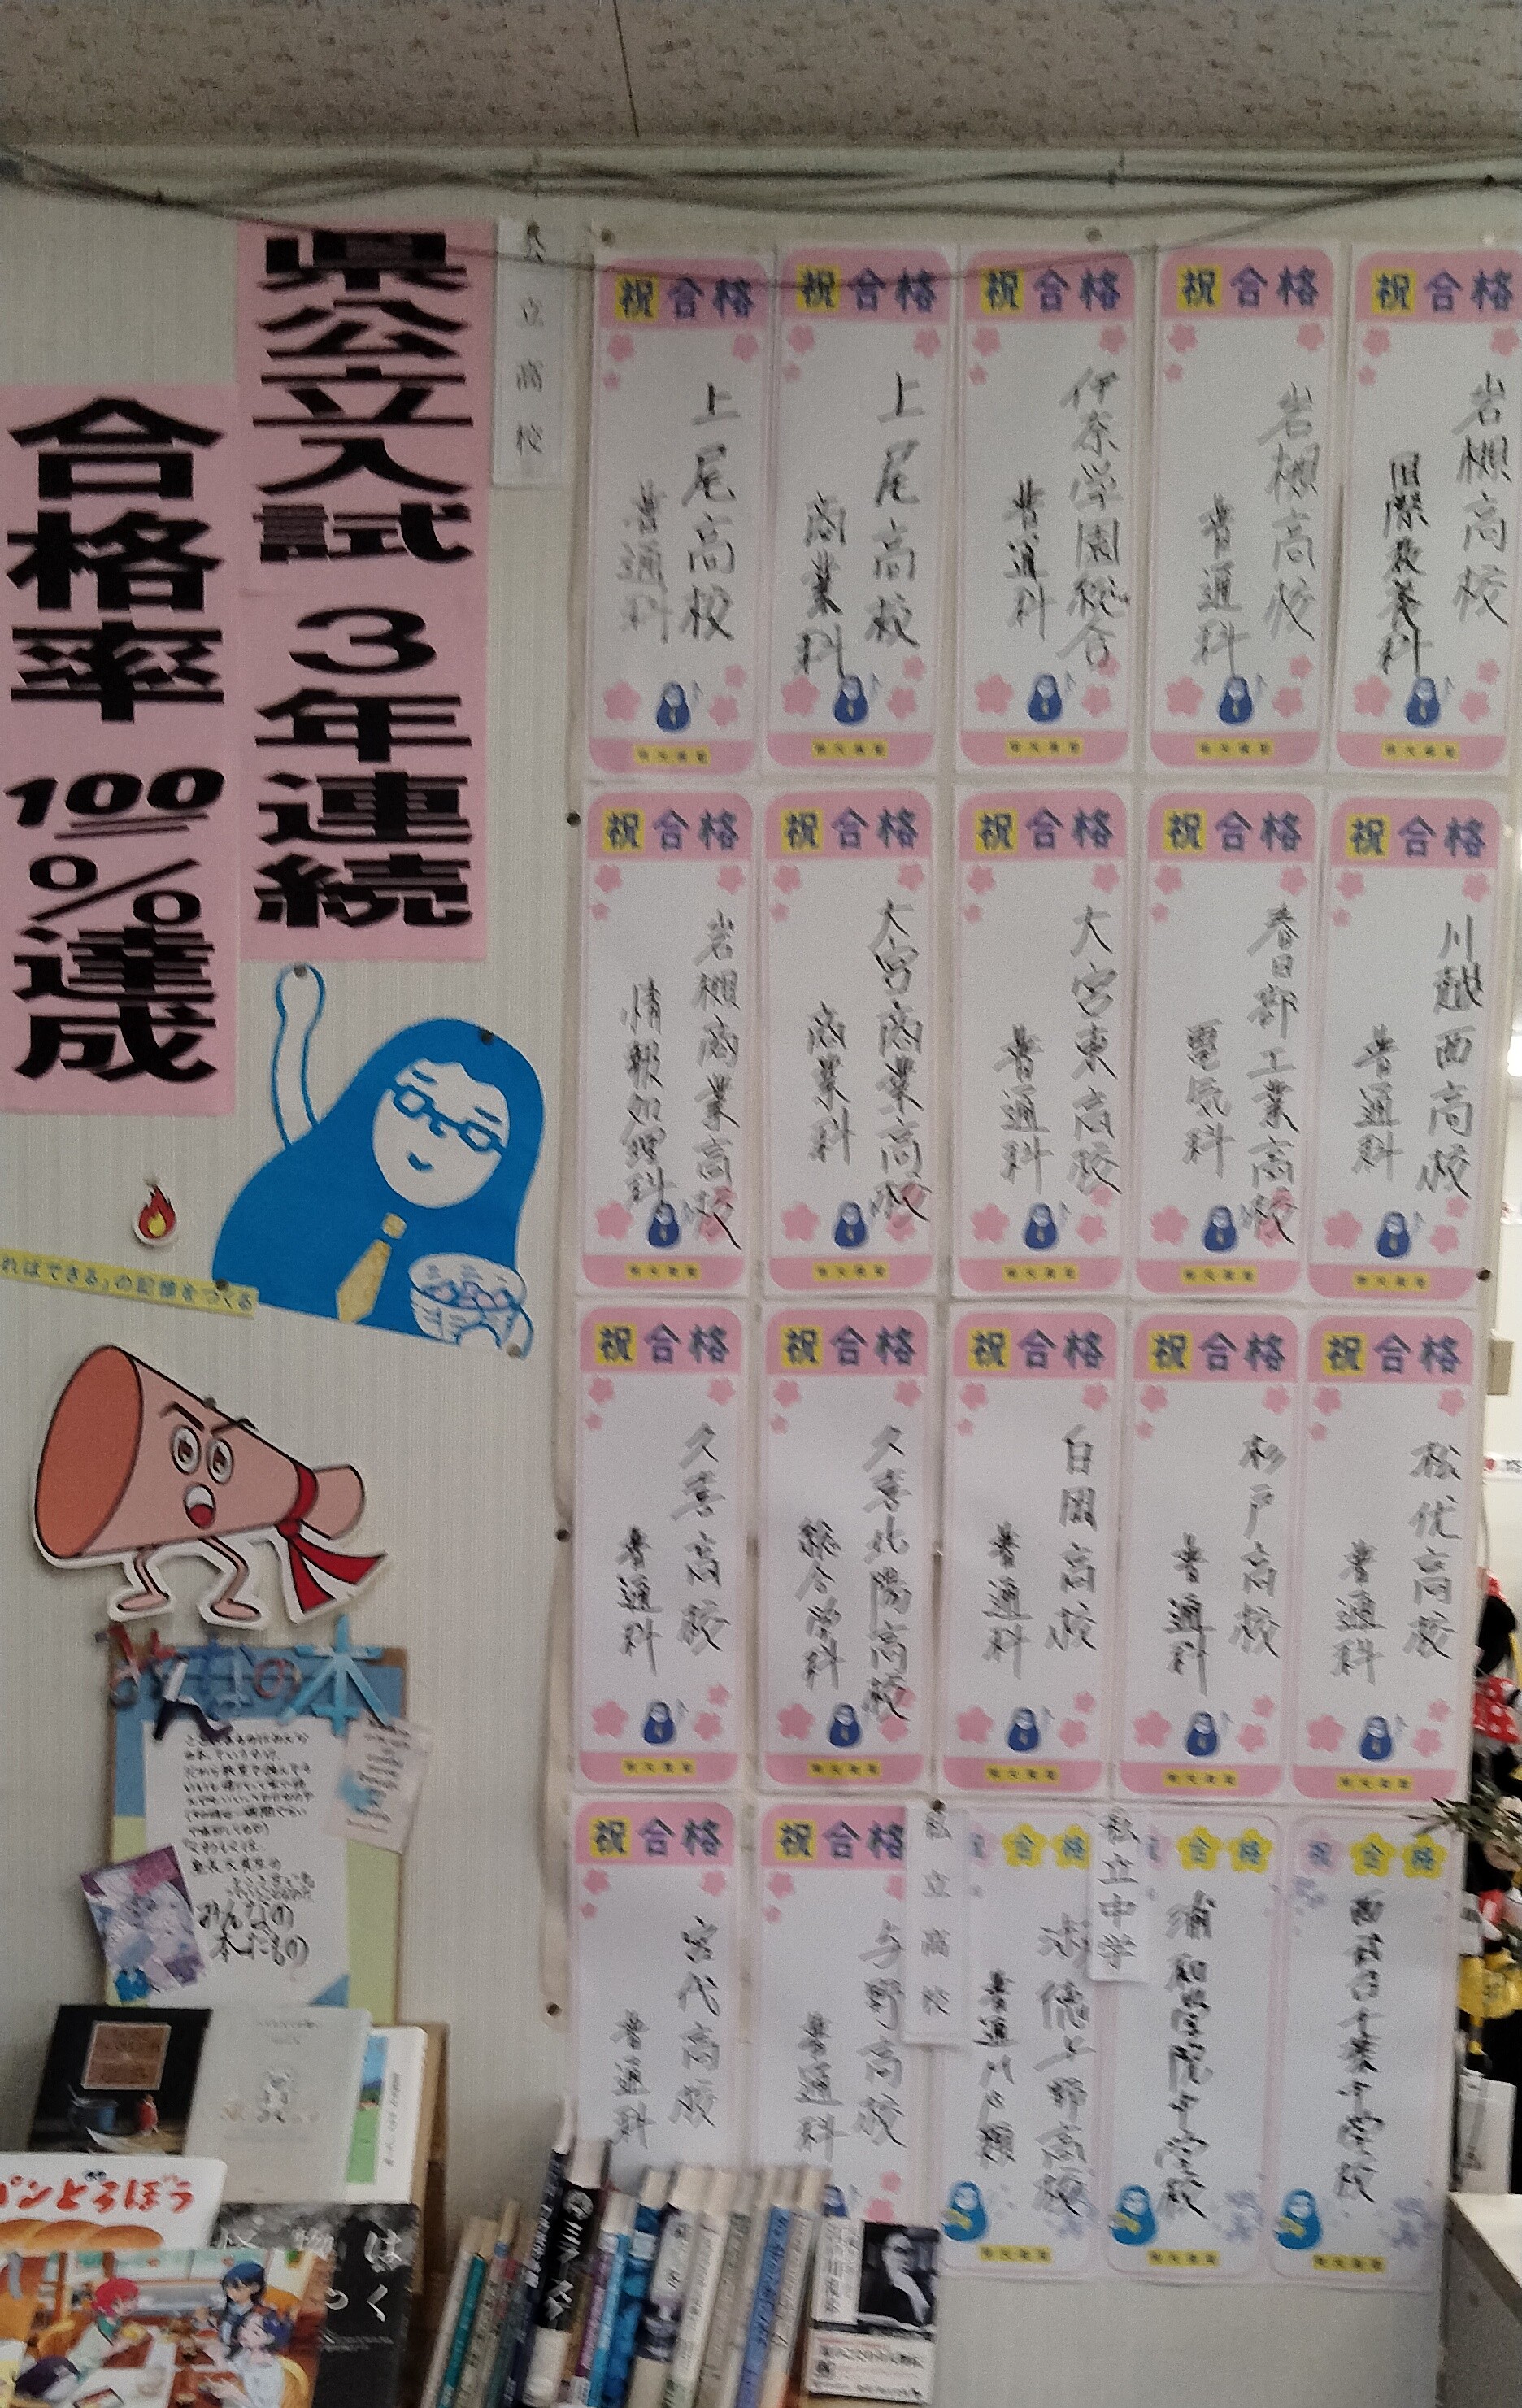 県公立入試 3年連続
合格率 100%達成
公立高校
祝合格
上尾高校
普通科
祝合格
上尾高校
商業科
祝合格
伊奈学園総合
普通科
祝合格
岩槻高校
普通科
祝合格
岩槻高校
国際教養科
祝合格
岩槻商業高校
情報処理科
祝合格
大宮商業高校
商業科
祝合格
大宮東高校
普通科
祝合格
春日部工業高校
電気科
祝合格
川越西高校
普通科
祝合格
久喜高校
普通科
祝合格
久喜北陽高校
総合学科
祝合格
白岡高校
普通科
祝合格
杉戸高校
普通科
祝合格
松伏高校
普通科
祝合格
宮代高校
普通科
祝合格
与野高校
普通科
私立高校
合格
淑徳与野高校
普通科MS類
私立中学
合格
浦和学院中学校
祝合格
西武台千葉中学校
ればできる」の記憶をつくる
みんなの本
みんなの
本だもの
パンどろぼう
ミライスタ